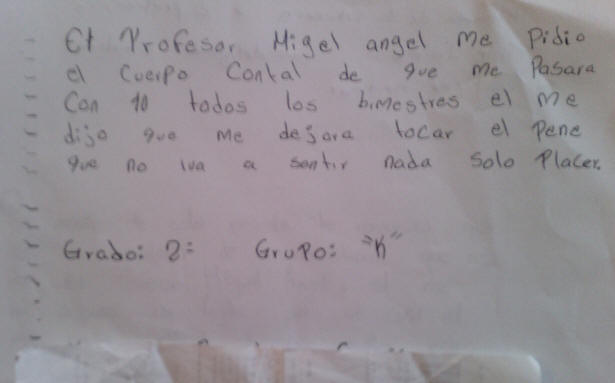 El Profesor Migel angel me Pidio
el Cuerpo Contal de que me Pasara
Con 10 todos los bimestres el me
dijo que me dejara tocar el Pene
que no iva a sentir nada Solo Placer.
Grado: 2= Grupo: "K"